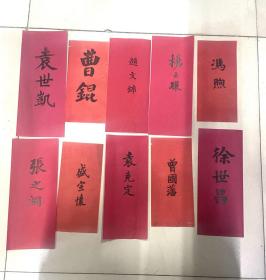 袁世凱
曹錕
趙文錦
馮煦
張之洞
盛宣懷
袁克定
曾國藩
徐世昌